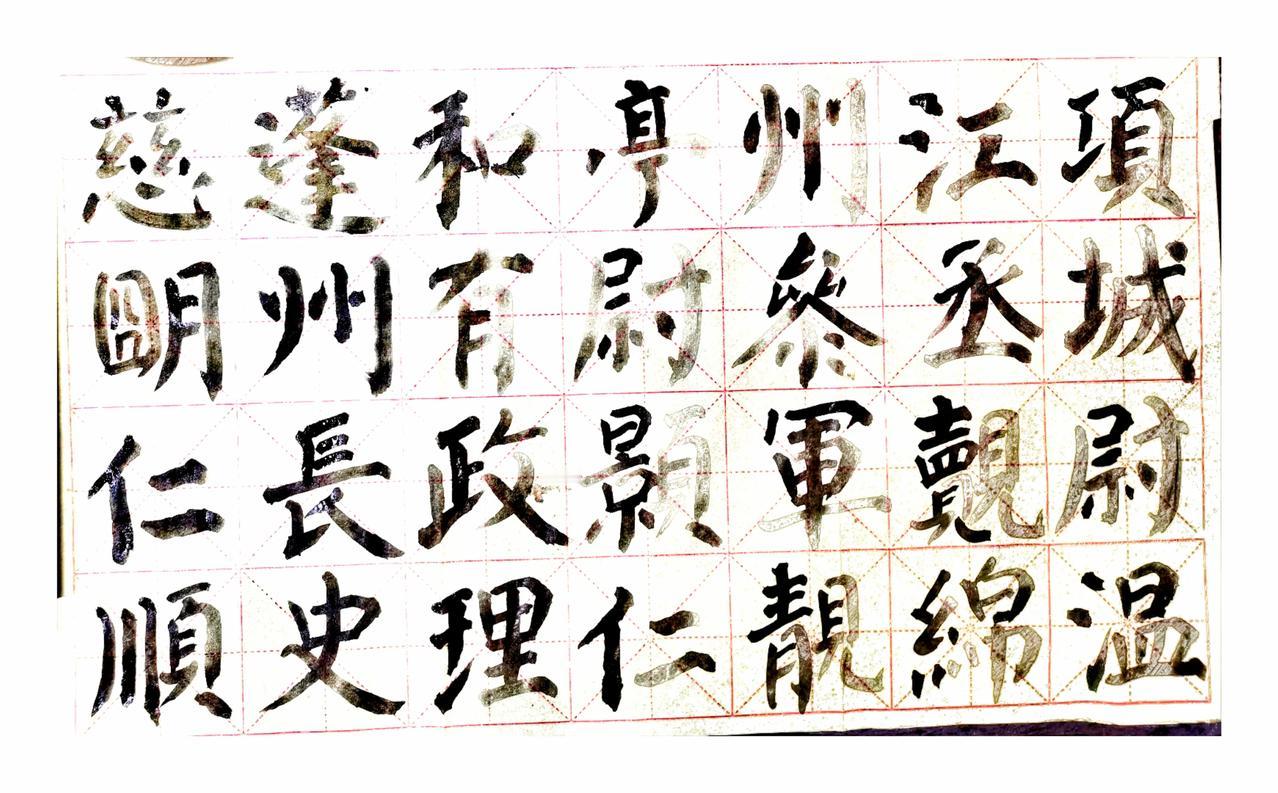 項城尉温
江丞覿綿
州參軍靚
亭尉顥仁
和有政理
蓬州長史
慈明仁順